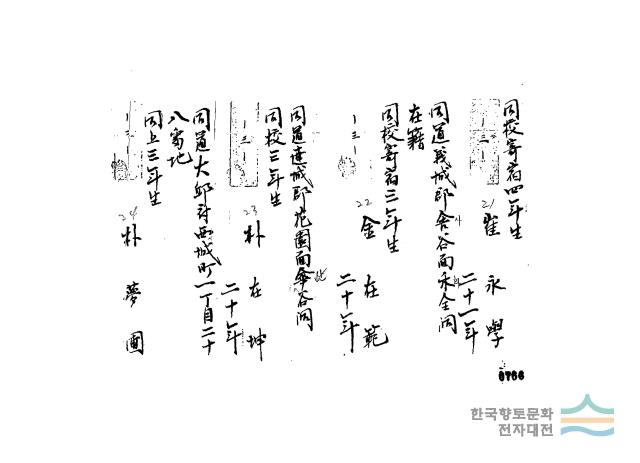 同校寄宿四年生
21 崔永學
二十一年
同道義城郡舍谷面永金洞
在籍
同校寄宿三年生
22 金在範
二十年
同道達城郡花園面傘谷洞
同校三年生
23 朴在坤
二十年
同道大邱府西城町一丁目二十
八番地
同上三年生
24 朴夢圃
0766
한국향토문화
전자대전